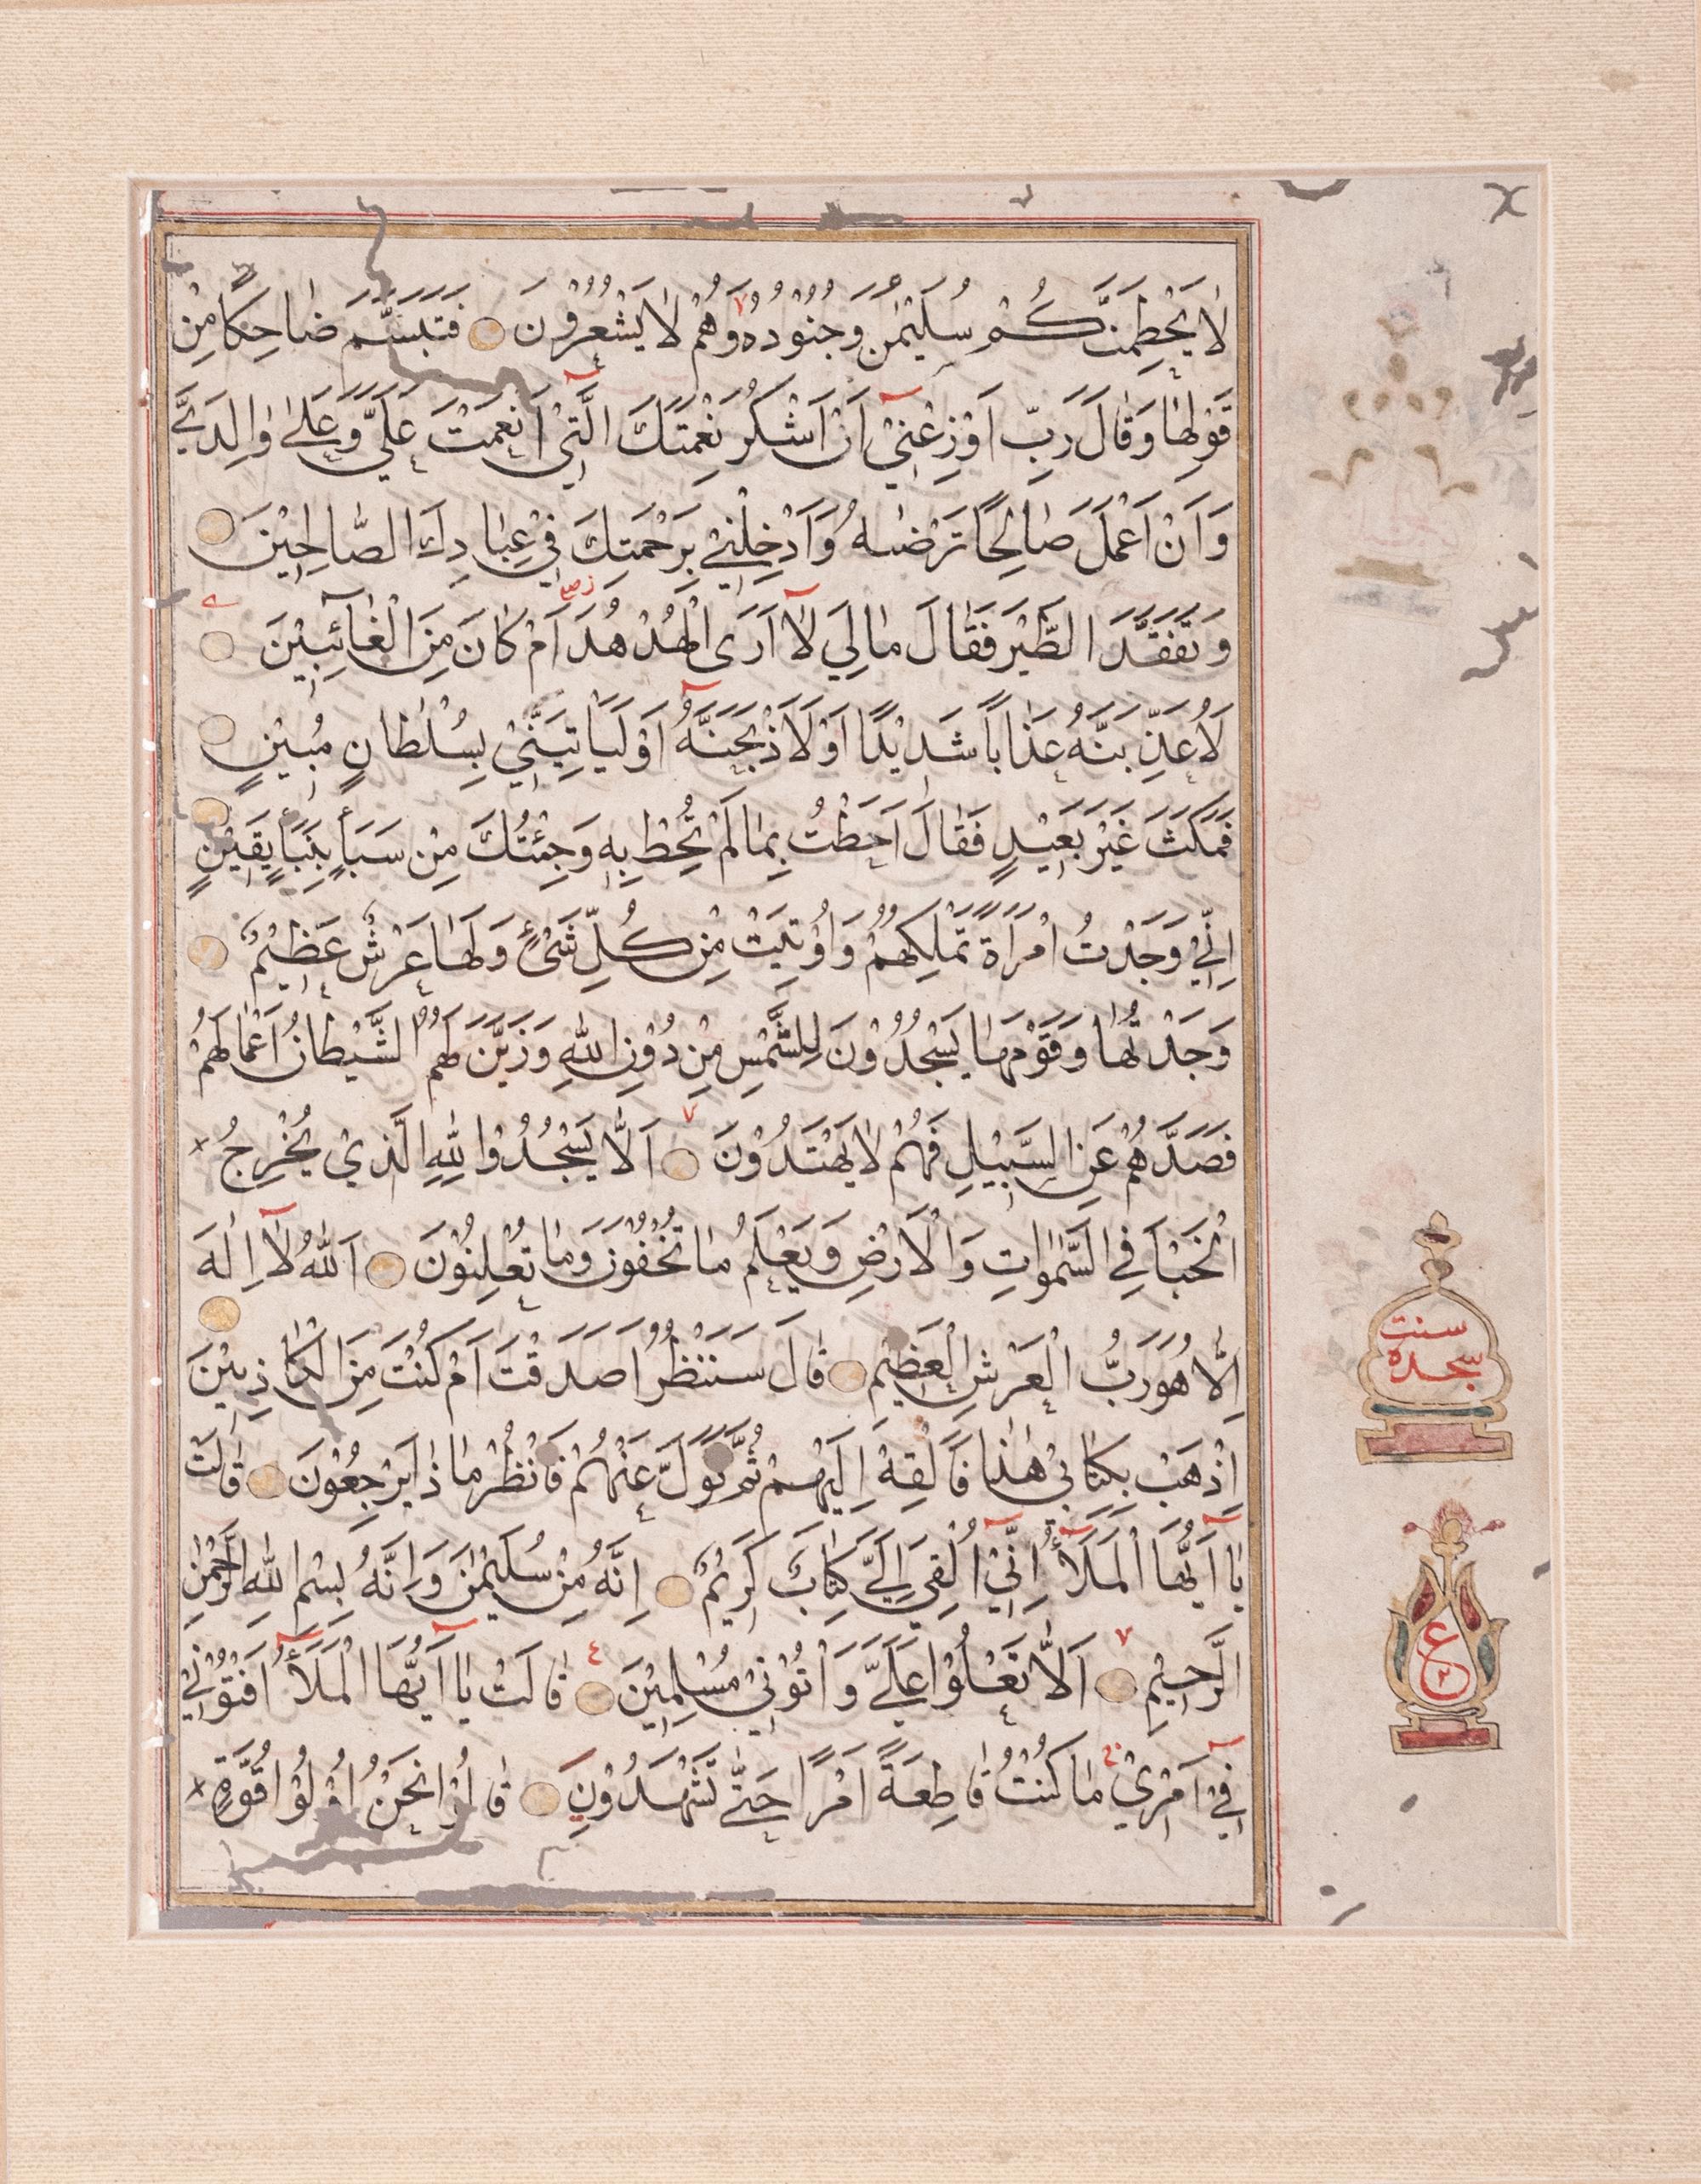 لَا يَحْطِمَنَّكُمْ سُلَيْمٰنُ وَجُنُوْدُهُ وَهُمْ لَا يَشْعُرُوْنَ فَتَبَسَّمَ ضَاحِكًا مِنْ
قَوْلِهَا وَقَالَ رَبِّ اَوْزِعْنِيْ اَنْ اَشْكُرَ نِعْمَتَكَ الَّتِيْ اَنْعَمْتَ عَلَيَّ وَعَلٰى وَالِدَيَّ
وَاَنْ اَعْمَلَ صَالِحًا تَرْضٰىهُ وَاَدْخِلْنِيْ بِرَحْمَتِكَ فِيْ عِبَادِكَ الصَّالِحِيْنَ
وَتَفَقَّدَ الطَّيْرَ فَقَالَ مَا لِيَ لَا اَرَى الْهُدْهُدَ اَمْ كَانَ مِنَ الْغَائِبِيْنَ
لَاُعَذِّبَنَّهُ عَذَابًا شَدِيْدًا اَوْ لَاَذْبَحَنَّهُ اَوْ لَيَاْتِيَنِّيْ بِسُلْطَانٍ مُبِيْنٍ
فَمَكَثَ غَيْرَ بَعِيْدٍ فَقَالَ اَحَطْتُ بِمَا لَمْ تُحِطْ بِهِ وَجِئْتُكَ مِنْ سَبَأٍ بِنَبَأٍ يَقِيْنٍ
اِنِّيْ وَجَدْتُ امْرَاَةً تَمْلِكُهُمْ وَاُوْتِيَتْ مِنْ كُلِّ شَيْءٍ وَلَهَا عَرْشٌ عَظِيْمٌ
وَجَدْتُهَا وَقَوْمَهَا يَسْجُدُوْنَ لِلشَّمْسِ مِنْ دُوْنِ اللّٰهِ وَزَيَّنَ لَهُمُ الشَّيْطَانُ اَعْمَالَهُمْ
فَصَدَّهُمْ عَنِ السَّبِيْلِ فَهُمْ لَا يَهْتَدُوْنَ اَلَّا يَسْجُدُوْا لِلّٰهِ الَّذِيْ يُخْرِجُ
الْخَبْاَ فِي السَّمٰوٰاتِ وَالْاَرْضِ وَيَعْلَمُ مَا تُخْفُوْنَ وَمَا تُعْلِنُوْنَ اَللّٰهُ لَا اِلٰهَ
اِلَّا هُوَ رَبُّ الْعَرْشِ الْعَظِيْمِ قَالَ سَنَنْظُرُ اَصَدَقْتَ اَمْ كُنْتَ مِنَ الْكَاذِبِيْنَ
سنت
سجده
اِذْهَبْ بِكِتَابِيْ هٰذَا فَاَلْقِهْ اِلَيْهِمْ ثُمَّ تَوَلَّ عَنْهُمْ فَانْظُرْ مَاذَا يَرْجِعُوْنَ قَالَتْ
يَا اَيُّهَا الْمَلَأُ اِنِّيْ اُلْقِيَ اِلَيَّ كِتَابٌ كَرِيْمٌ اِنَّهُ مِنْ سُلَيْمٰنَ وَاِنَّهُ بِسْمِ اللّٰهِ الرَّحْمٰنِ
الرَّحِيْمِ اَلَّا تَعْلُوْا عَلَيَّ وَاْتُوْنِيْ مُسْلِمِيْنَ قَالَتْ يَا اَيُّهَا الْمَلَأُ اَفْتُوْنِيْ
ع
فِيْ اَمْرِيْ مَا كُنْتُ قَاطِعَةً اَمْرًا حَتّٰى تَشْهَدُوْنِ قَالُوْا نَحْنُ اُوْلُوْا قُوَّةٍ